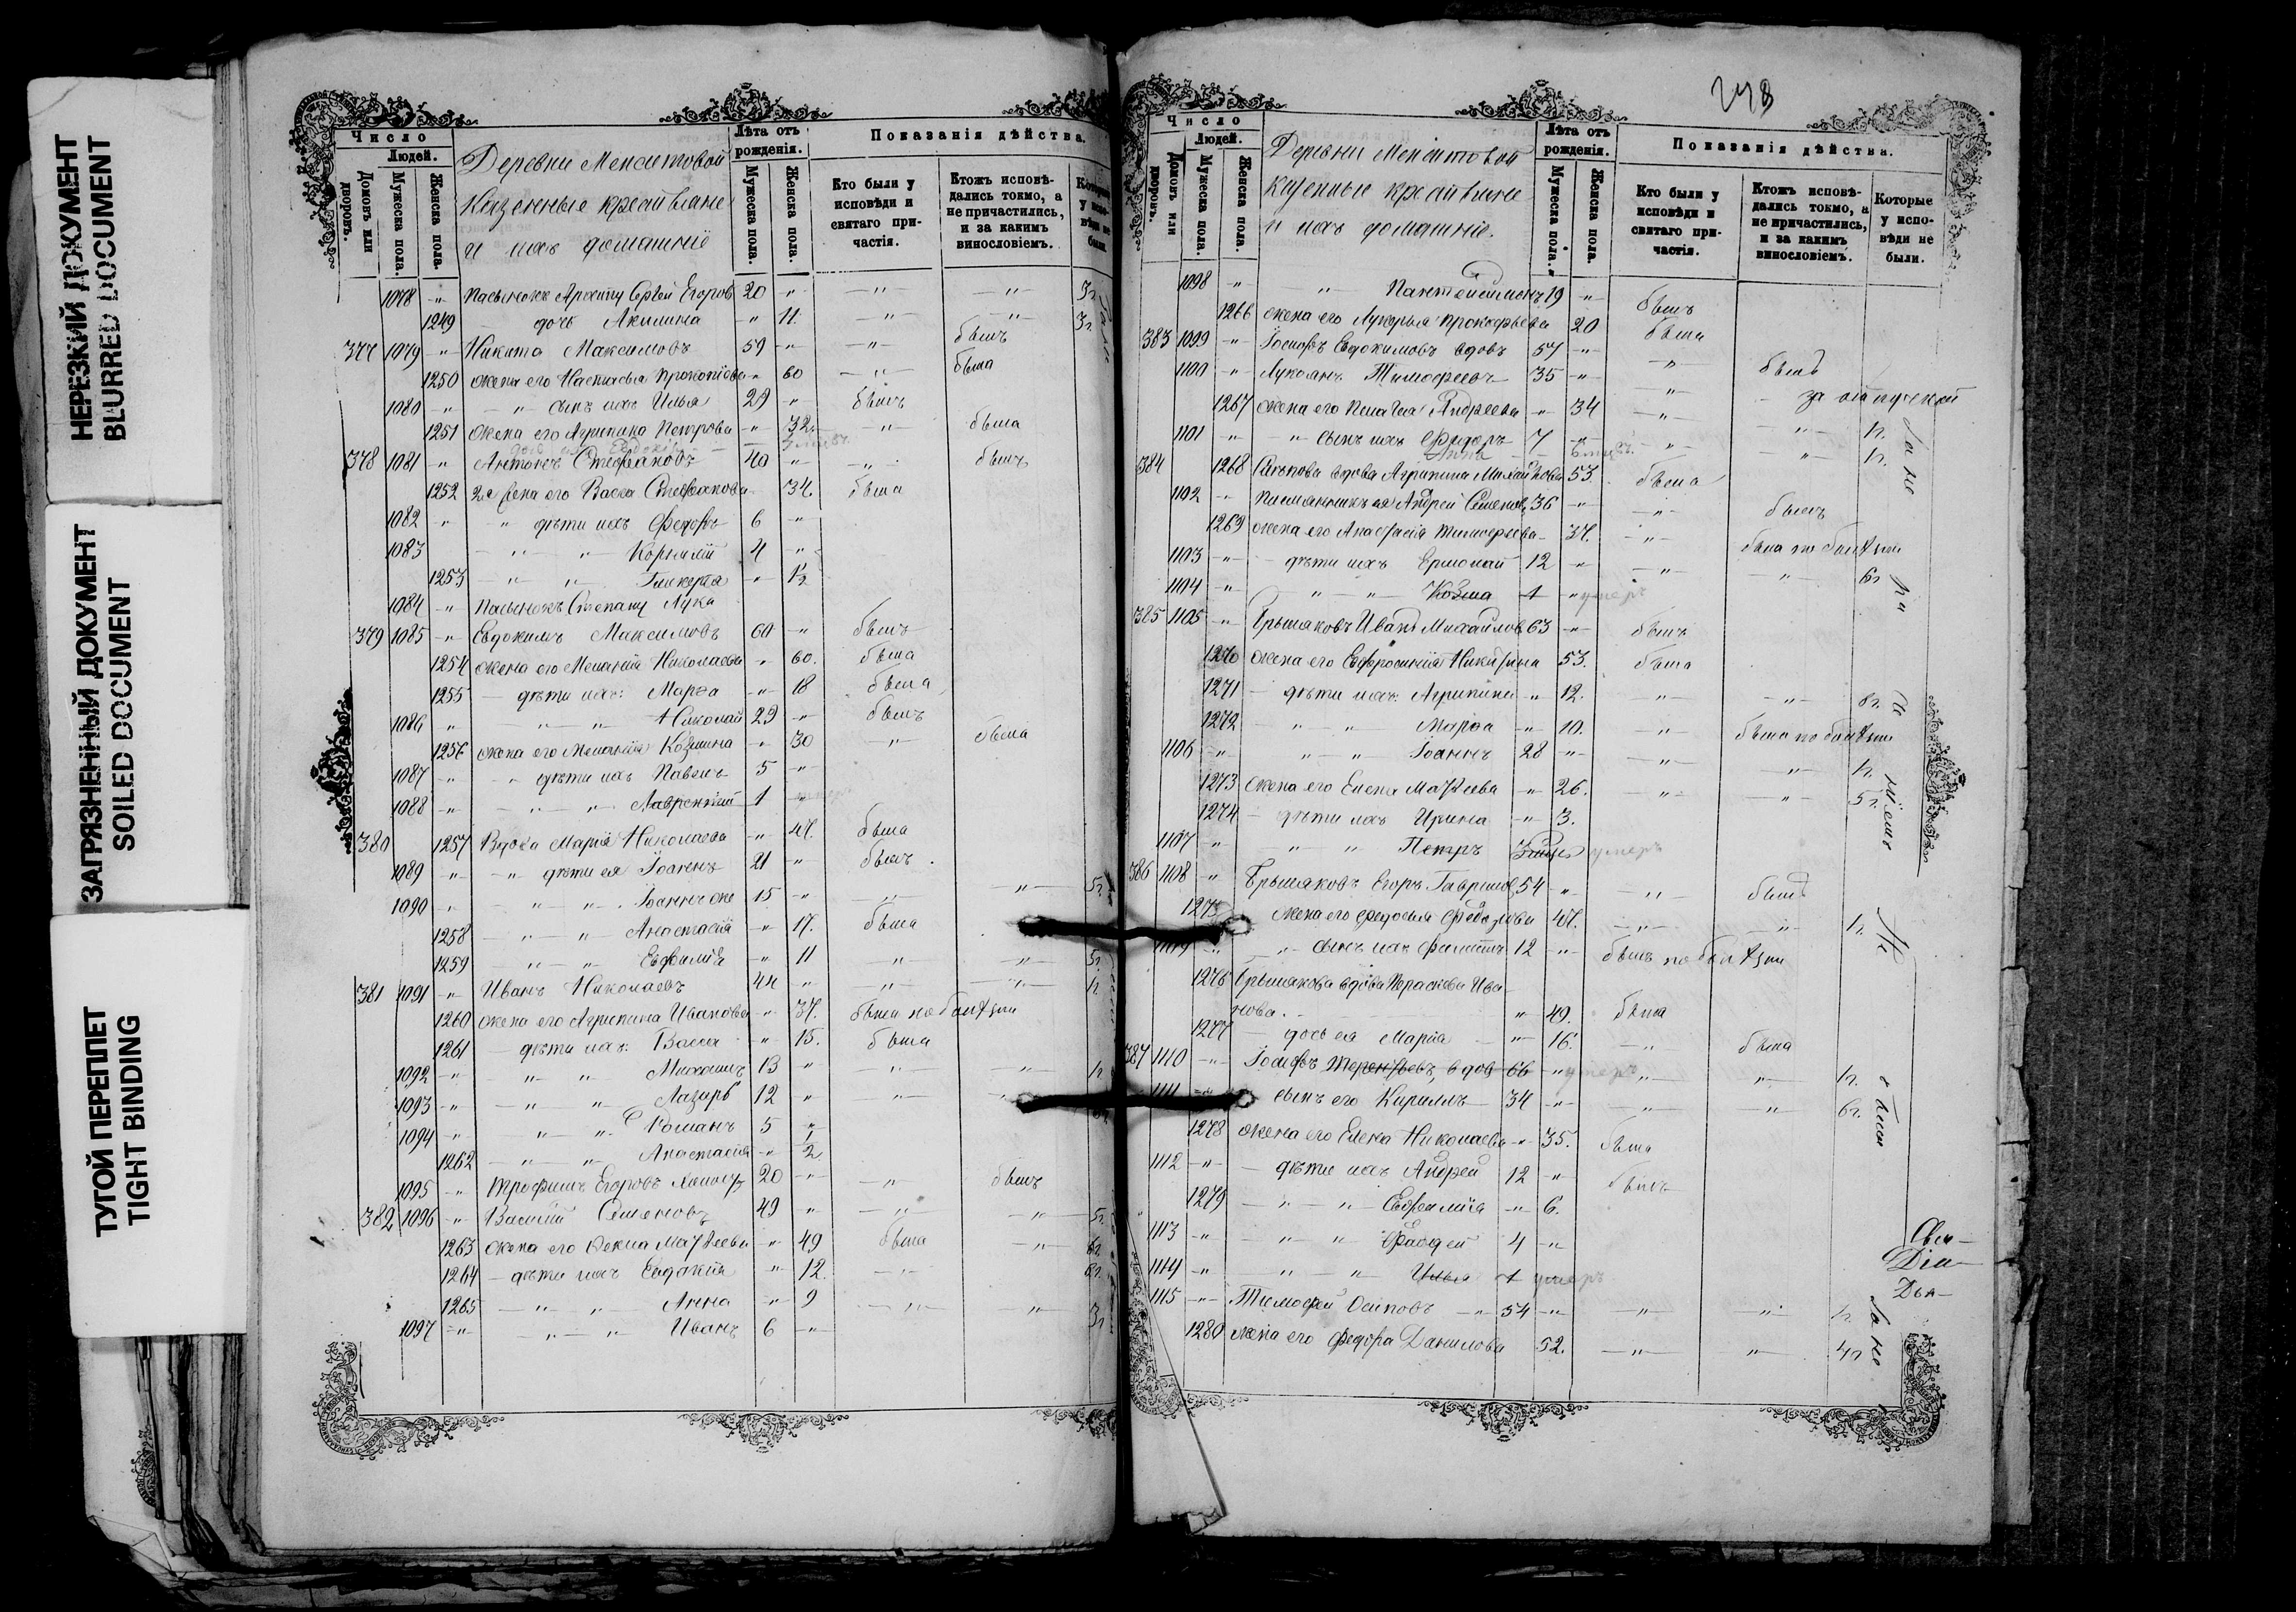 НЕРЕЗКИЙ ДОКУМЕНТ
BLURRED DOCUMENT
ЗАГРЯЗНЕННЫЙ ДОКУМЕНТ
SOILED DOCUMENT
ТУГОЙ ПЕРЕПЛЕТ
TIGHT BINDING
Число
Людей.
Домовъ или дворовъ.
Мужеска пола.
Женска пола.
Деревни Менситовой
Казенные крестьяне
и ихъ домашніе
Лѣта отъ рожденія.
Мужеска пола.
Женска пола.
Показанія дѣйства.
Кто были у исповѣди и святаго причастія.
Ктожъ исповѣдались токмо, а не причастились, и за какимъ винословіемъ.
1078 -"- Пасынокъ Архипу Сергей Егоров 20 -"- -"- -"- 3г.
1249 дочь Акилина -"- 11. -"- -"- 3г.
377 1079 -"- Никита Максимовъ 59 -"- -"- былъ
1250 жена его Настасья Прокопіева -"- 60 -"- была
1080 -"- -"- сынъ ихъ Илья 29 -"- былъ
1251 жена его Агрипина Петрова -"- 32 -"- была
378 1081 -"- Антонъ Стефановъ 40 -"- -"- былъ
1252 2я жена его Васса Стефанова 34. была
1082 -"- -"- дѣти ихъ Федоръ 6 -"-
1083 -"- -"- Корнилій 4 -"-
1253 -"- -"- Гликерія -"- 1/2
1084 -"- Пасынокъ Степану Лука
379 1085 -"- Евдокимъ Максимовъ 60 -"- былъ
1254 жена его Меланія Николаева -"- 60. была
1255 - дѣти ихъ: Марѳа -"- 18 была
1086 -"- -"- -"- Николай 29 -"- былъ
1256 жена его Меланія Козмина -"- 30 -"- была
1087 -"- -"- дѣти ихъ Павелъ 5 -"-
1088 -"- -"- -"- Лаврентій 1 -"-
380 1257 Вдова Марія Николаева -"- 47. была
1089 -"- -"- дѣти ея Іоаннъ 21 -"- былъ
1090 -"- -"- -"- Іоаннъ же 15 -"- -"- -"- 5г.
1258 -"- -"- Анастасія -"- 17. была
1259 -"- -"- Евфимія -"- 11 -"- -"- 5г.
381 1091 -"- Иванъ Николаевъ 44 -"- -"- -"-
1260 жена его Агрипина Иванова -"- 37. была по болѣзни
1261 - дѣти ихъ: Васса -"- 15. была
1092 -"- -"- -"- Михаилъ 13 -"- -"- -"-
1093 -"- -"- -"- Лазарь 12 -"- -"- -"-
1094 -"- -"- -"- Романъ 5 -"-
1262 -"- -"- Анастасія -"- 1/2
1095 -"- Трофимъ Егоровъ 20 -"- -"- былъ
382 1096 -"- Василій Семеновъ 49 -"- -"- -"- 5г.
1263 жена его Ѳекла Матѳеева -"- 49 была -"- 6г.
1264 - дѣти ихъ Евдокія -"- 12. -"- 6г.
1265 -"- -"- Анна -"- 9 -"- -"- 3г.
1097 -"- -"- -"- Иванъ 6 -"-
Число
Людей.
Домовъ или дворовъ.
Мужеска пола.
Женска пола.
Деревни Менситовой
казенные крестьяне
и ихъ домашніе.
Лѣта отъ рожденія.
Мужеска пола.
Женска пола.
Показанія дѣйства.
Кто были у исповѣди и святаго причастія.
Ктожъ исповѣдались токмо, а не причастились, и за какимъ винословіемъ.
Которые у исповѣди не были.
1098 -"- -"- Пантелеймонъ 19 -"- былъ
1266 жена его Лукерья Прокофьева 20 была
383 1099 -"- Іосифъ Евдокимовъ вдовъ 57 -"- -"- былъ
1100 -"- Лукіанъ Тимофеевъ 35 -"- -"- за отлучкой
1267 жена его Пелагея Андреева -"- 34 -"- -"-
1101 -"- -"- сынъ ихъ Федоръ 7 -"- -"- -"-
Анна
384 1268 вдова Агрипина Михайлова 53. была
1102 -"- Племянникъ ея Андрей Семенов 36 -"- -"- былъ
1269 жена его Анастасія Тимофеева 37. -"- была по болѣзни
1103 -"- - дѣти ихъ Ермолай 12 -"- -"- -"- 6г.
1104 -"- -"- -"- Козма 1 -"- умеръ
385 1105 -"- Грызаковъ Иванъ Михайлов 63 -"- былъ
1270 жена его Евфросинія Никитина 53. была
1271 - дѣти ихъ: Агрипина -"- 12. -"- -"- 8г.
1272 -"- -"- Марѳа -"- 10. -"- была по болѣзни
1106 -"- -"- -"- Іоаннъ 28 -"- -"- -"-
1273 жена его Елена Матѳеева -"- 26. -"- -"- 5г.
1274 - дѣти ихъ Ирина -"- 3.
1107 -"- -"- -"- Петръ умеръ
386 1108 -"- Егоръ Гаврилов 54 -"- -"- былъ
1275 жена его Федосья Федорова 47. -"- -"-
1109 -"- -"- сынъ ихъ Филиппъ 12 -"- былъ по болѣзни
1276 вдова Параскева Ива-
нова. -"- 49. была
1277 дочь ея Марія -"- 16. -"- была
387 1110 -"- Іосифъ Терентьевъ, вдов 66 -"- умеръ -"- -"-
1111 -"- сынъ его Кириллъ 34 -"- -"- -"- 6г.
1278 жена его Елена Николаева -"- 35. была
1112 -"- - дѣти ихъ Андрей 12 -"- былъ
1279 -"- -"- Евфимія -"- 6.
1113 -"- -"- -"- Фаддей 4 -"-
1114 -"- -"- -"- Илья 1 умеръ
1115 -"- Тимофей Осиповъ -"- 54 -"- -"- -"-
1280 жена его Федора Данилова 52. -"- -"- 4г.
Діа-